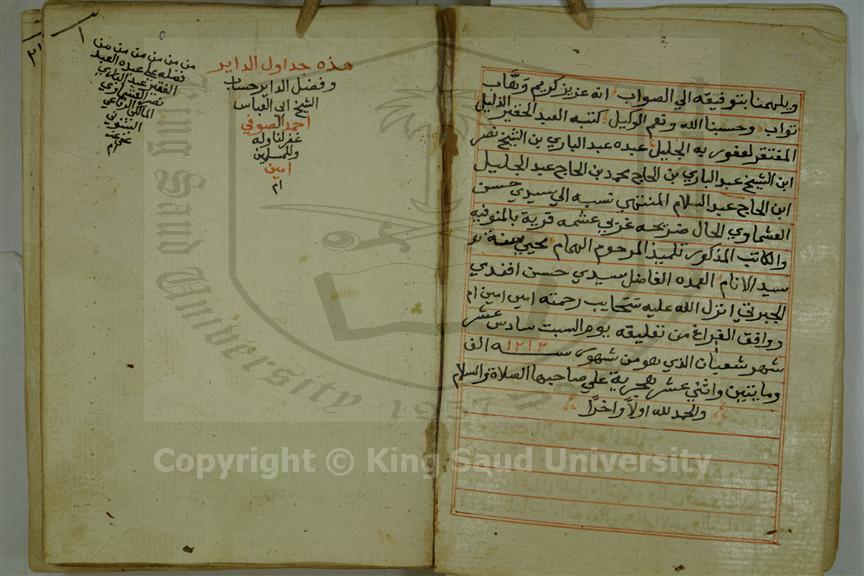 ويلهمنا بتوفيقه الي الصواب انه عزيز كريم وهاب
تواب وحسبنا الله ونعم الوكيل كتبه العبد الحقير الذليل
المفتقر لعفو ربه الجليل عبده عبد الباري بن الشيخ نصر
ابن الشيخ عبد الباري بن الحاج محمد بن الحاج عبد الجليل
ابن الحاج عبد السلام المنتهي نسبه الي سيدي حسن
العشماوي الحال ضريحه غربي عشمه قرية بالمنوفيه
والكاتب المذكور تلميذ المرحوم الهمام محيي سنة
سيد الانام العمده الفاضل سيدي حسن افندي
الجبرتي انزل الله عليه سحايب رحمته امين امين ام
ووافق الفراغ من تعليقه يوم السبت سادس عشر
شهر شعبان الذي هو من شهور سنة ١٢١٢ الف
ومايتين واثني عشر هجرية علي صاحبها الصلاة والسلام
والحمد لله اولا واخرا
هذه جداول الداير
وفضل الداير حساب
الشيخ ابي العباس
احمد الصوفي
غفر لنا وله
وللمسلمين
امين
ام
من من من من من من
فضله علي عبده العبد
الفقير عبد الباري
نصر العشماوي
المالكي الرفاعي
عنه
ام
١
King Saud University
1957
Copyright © King Saud University